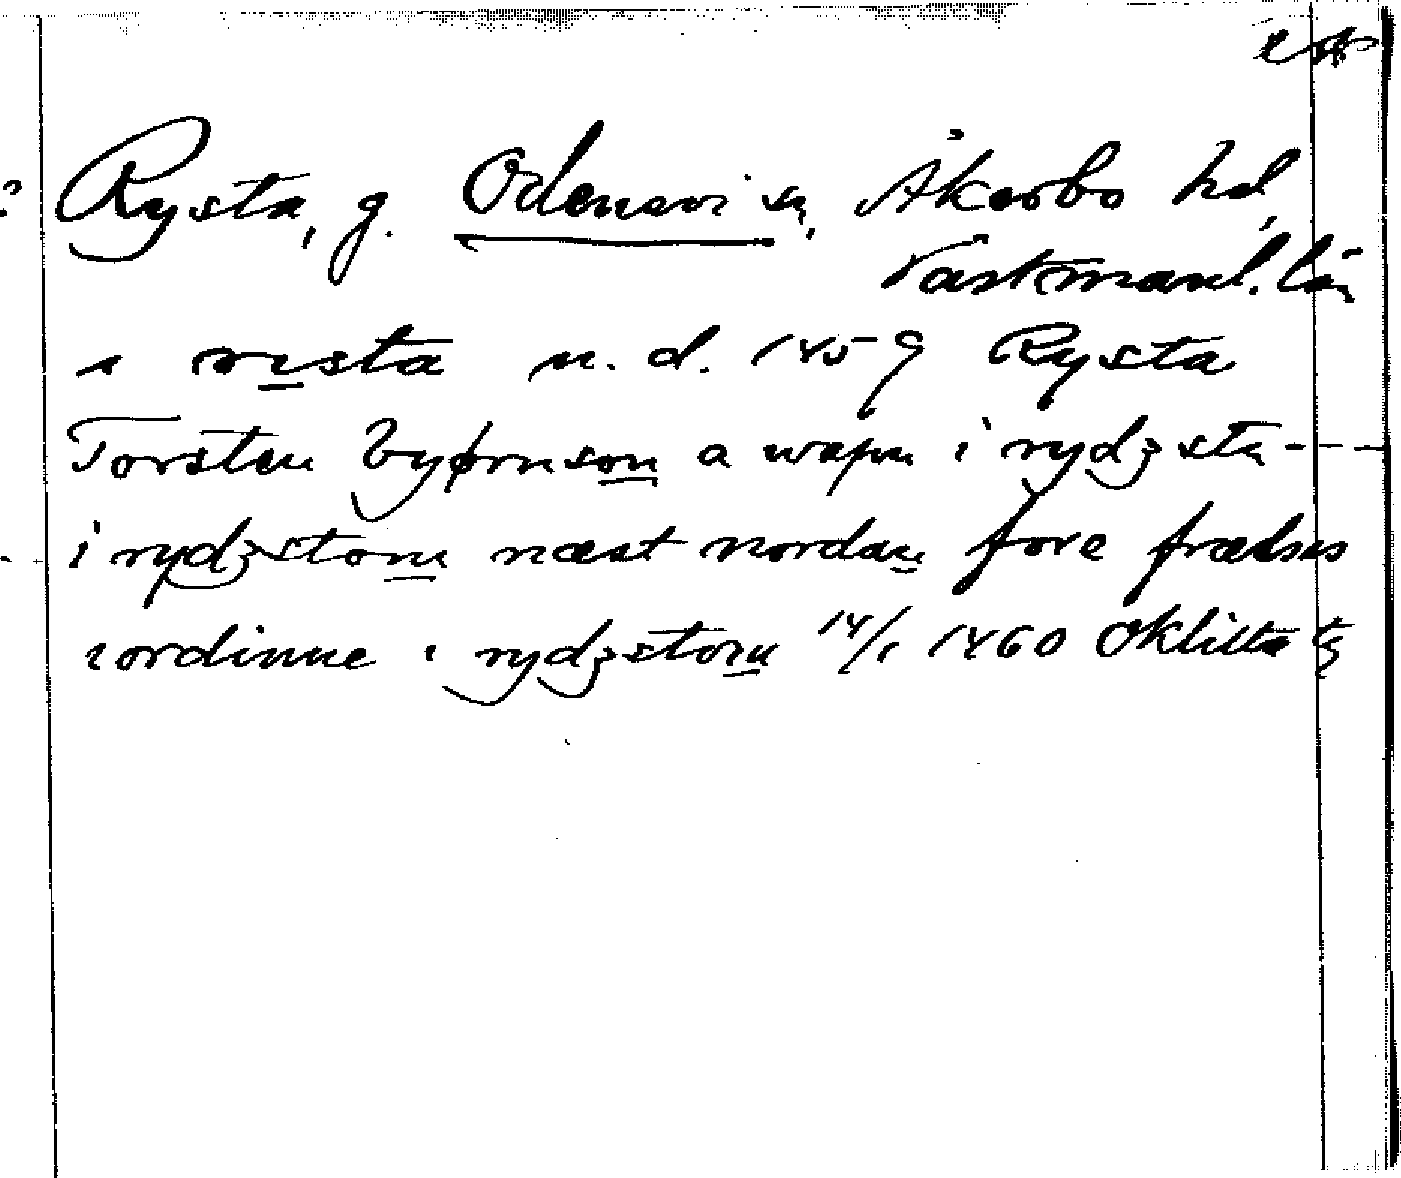 Rysta, g. Odensvi sn, Åkerbo hd,
Västmanl. län
i resta u. d. 1459 Rysta
Torsten byørnson a wapn i rydzsta - - -
i rydzstom næst nordan fore frælses
iordinne i rydzstom 14/1 1460 Oklista